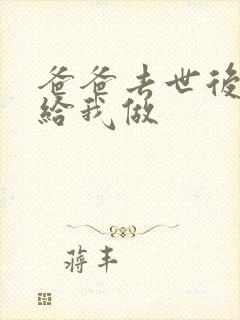 爸爸去世後
給我做
蔣丰